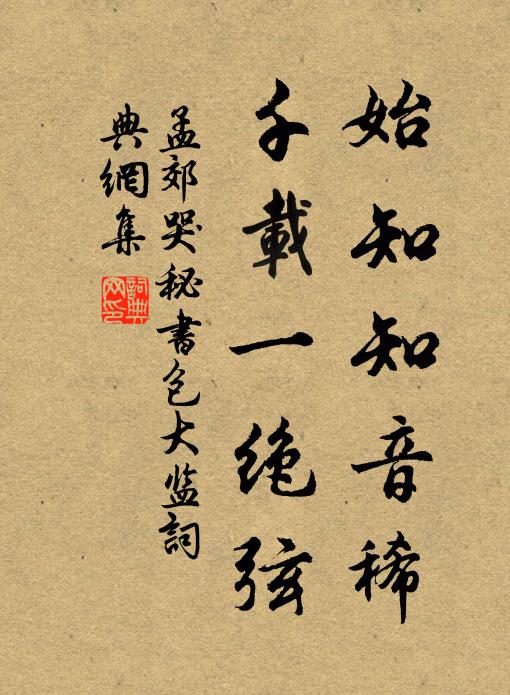 始知知音稀
千載一绝弦
孟郊哭秘書包大监詞
典網集
詞典网印